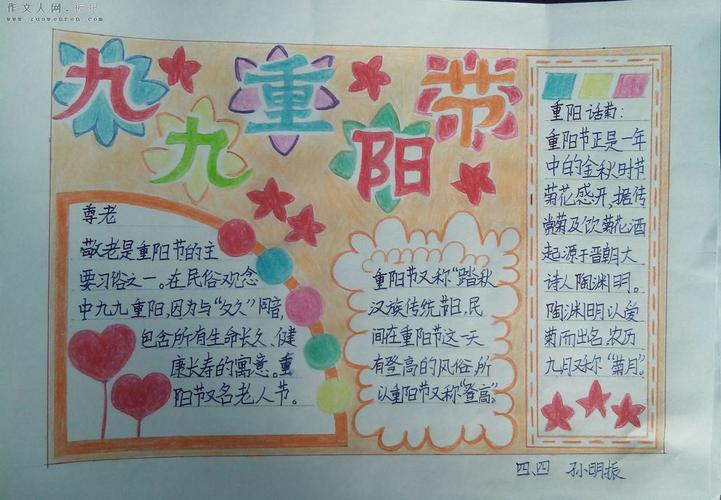 作文人网
www.zuowenren.com
九九重阳节
尊老
敬老是重阳节的主
要习俗之一。在民俗观念
中九九重阳,因为与“久久”同音,
包含所有生命长久、健
康长寿的寓意。重
阳节又名老人节。
重阳节又称“踏秋
汉族传统节日,民
间在重阳节这一天
有登高的风俗,所
以重阳节又称“登高。”
重阳话菊:
重阳节正是一年
中的金秋时节
菊花盛开,据传
赏菊及饮菊花酒
起源于晋朝大
诗人陶渊明。
陶渊明以爱
菊而出名,农历
九月又称“菊月”。
四四 孙明振